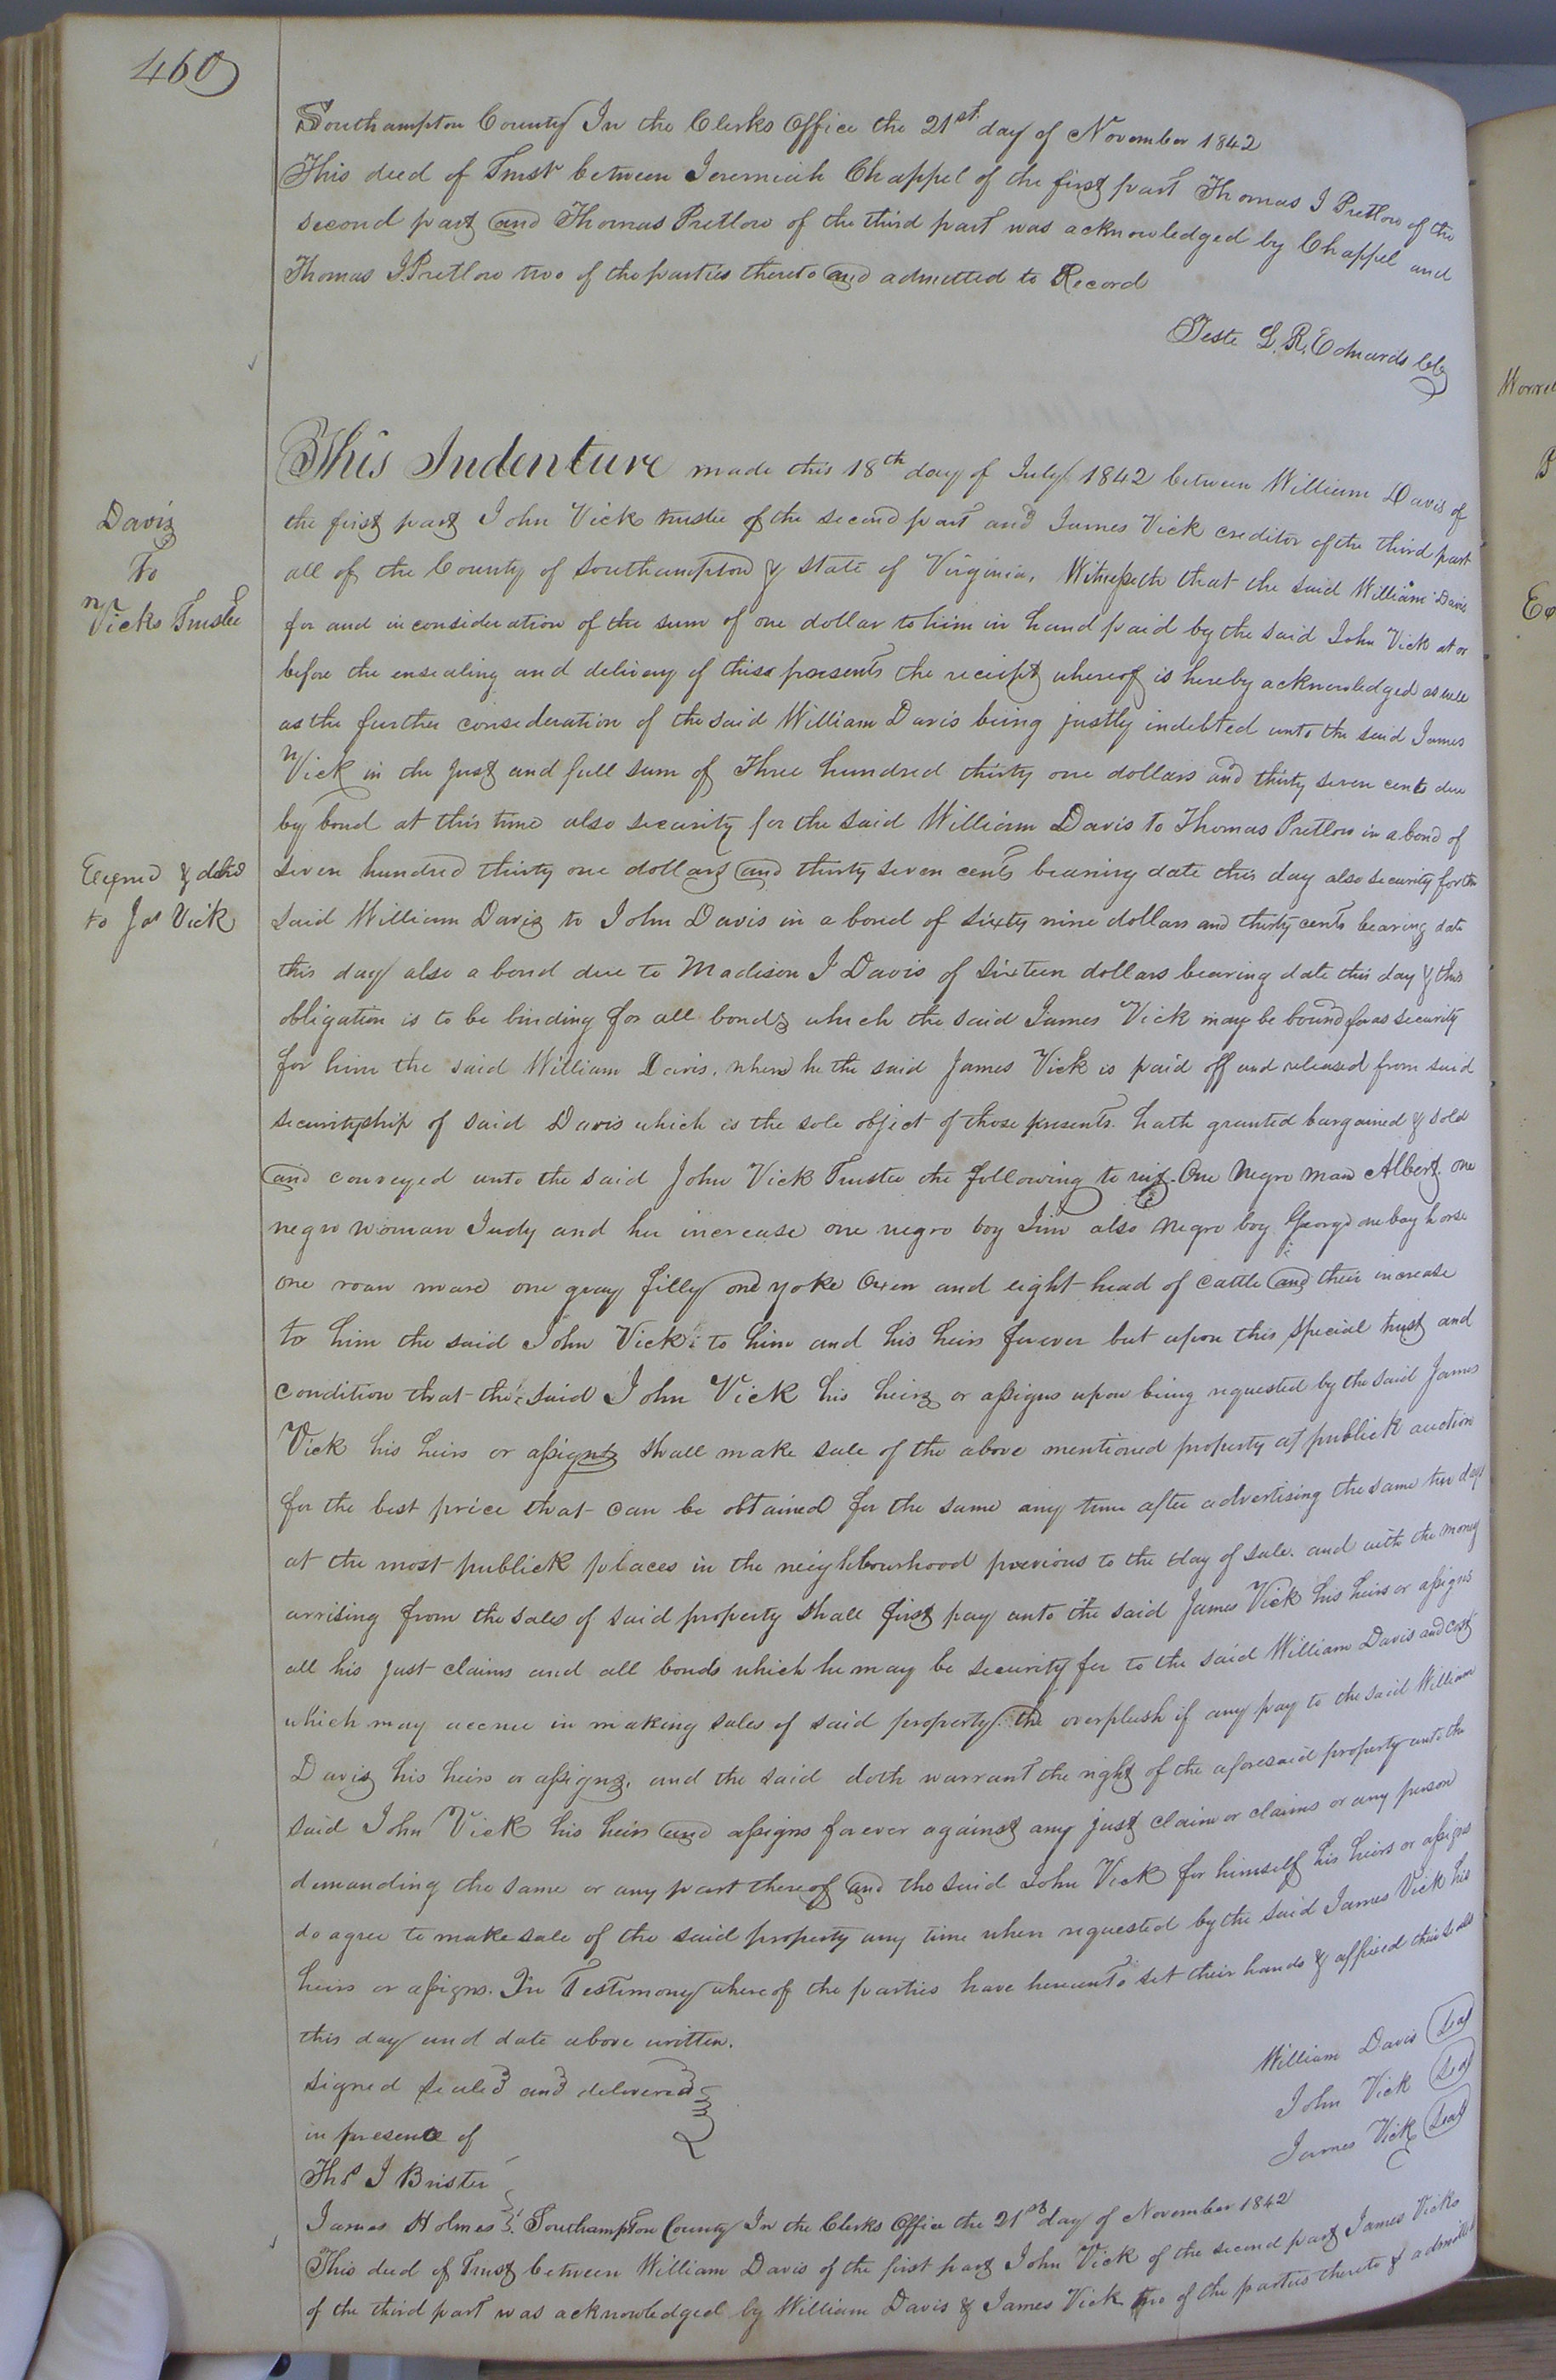 460
Southampton County In the Clerks Office the 21st day of November 1842
This deed of Trust between Jeremiah Chappel of the first part Thomas J Pretlow of the
second part and Thomas Pretlow of the third part was acknowledged by Chappel and
Thomas J. Pretlow two of the parties thereto and admitted to Record
Teste L. R. Edwards Clk
Davis
To
Vicks Trustee
This Indenture made this 18th day of July 1842 between William Davis of
the first part John Vick trustee of the second part and James Vick creditor of the third part
all of the County of Southampton & state of Virginia, Witnesseth that the said William Davis
for and in consideration of the sum of one dollar to him in hand paid by the said John Vick at or
before the ensealing and delivery of these presents the reciept whereof is hereby acknowledged as well
as the further consideration of the said William Davis being justly indebted unto the said James
Vick in the just and full sum of Three hundred thirty one dollars and thirty seven cents due
by bond at this time also security for the said William Davis to Thomas Pretlow in a bond of
Exmd & deld
to Jas Vick
seven hundred thirty one dollars and thirty seven cents bearing date this day also security for the
said William Davis to John Davis in a bond of sixty nine dollars and thirty cents bearing date
this day also a bond due to Madison J Davis of sixteen dollars bearing date this day & this
obligation is to be binding for all bonds which the said James Vick may be bound for as security
for him the said William Davis, when he the said James Vick is paid off and released from said
securityship of said Davis which is the sole object of those presents hath granted bargained & sold
and conveyed unto the said John Vick Trustee the following to wit. One Negro man Albert one
negro woman Judy and her increase one negro boy Jim also negro boy George one bay horse
one roan mare one gray filly one yoke Oxen and eight head of cattle and their increase
to him the said John Vick to him and his heirs forever but upon this special trust and
condition that the said John Vick his heirs or assigns upon being requested by the said James
Vick his heirs or assigns shall make sale of the above mentioned property at publick auction
for the best price that can be obtained for the same any time after advertising the same ten days
at the most publick places in the neighbourhood previous to the day of sale. and with the money
arrising from the sales of said property shall first pay unto the said James Vick his heirs or assigns
all his just claims and all bonds which he may be security for to the said William Davis and cost
which may accrue in making sales of said property. the overplush if any pay to the said William
Davis his heirs or assigns, and the said doth warrant the right of the aforesaid property unto the
said John Vick his heirs and assigns forever against any just claim or claims or any person
demanding the same or any part thereof and the said John Vick for himself his heirs or assigns
do agree to make sale of the said property any time when requested by the said James Vick his
heirs or assigns. In Testimony whereof the parties have hereunto set their hands & affixed their seals
this day and date above written.
signed sealed and delivered
in presence of
Ths J Brister
James Holmes
William Davis Seal
John Vick Seal
James Vick Seal
Southampton County In the Clerks Office the 21st day of November 1842
This deed of Trust between William Davis of the first part John Vick of the second part James Vicks
of the third part was acknowledged by William Davis & James Vick two of the parties thereto & admitted